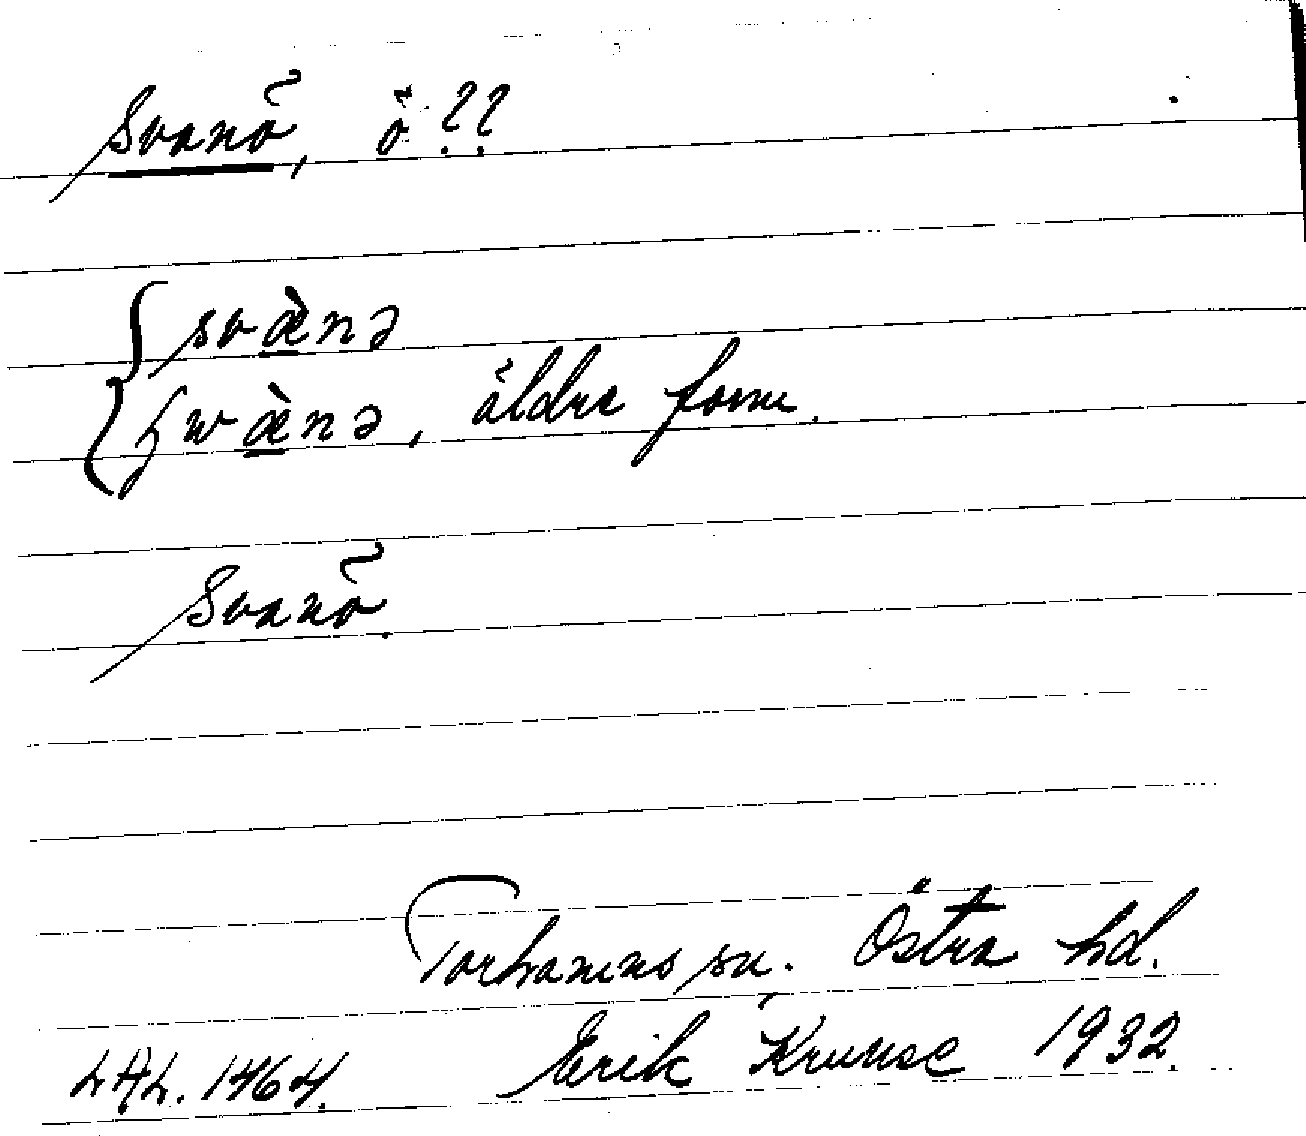 Svanö, ö ??
svæ̀nə
ʃwæ̀nə, äldre form.
Svanö.
Torhamns sn. Östra hd.
LAL. 1464. Erik Kruuse 1932.